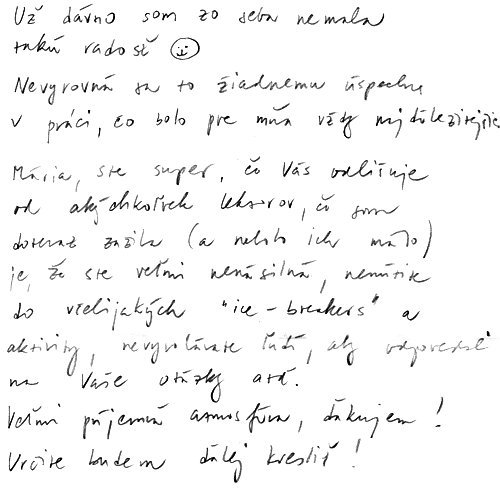 Už dávno som zo seba nemala
takú radosť ☺
Nevyrovná sa to žiadnemu úspechu
v práci, čo bolo pre mňa vždy najdôležitejšie
Mária, ste super, čo Vás odlišuje
od akýchkoľvek lektorov, čo som
doteraz zažila (a nebolo ich málo)
je, že ste veľmi nenásilná, nenútite
do všelijakých "ice-breakers" a
aktivity, nevyvolávate ľudí, aby odpovedali
na Vaše otázky atď.
Veľmi príjemná atmosféra, ďakujem!
Určite budem ďalej kresliť!